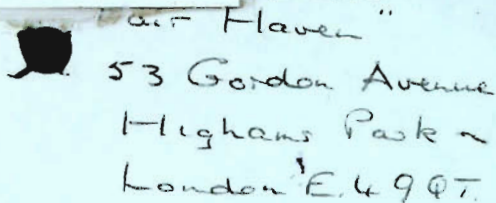 Haven"
53 Gordon Avenue
Highams Park
London E.4 9QT.